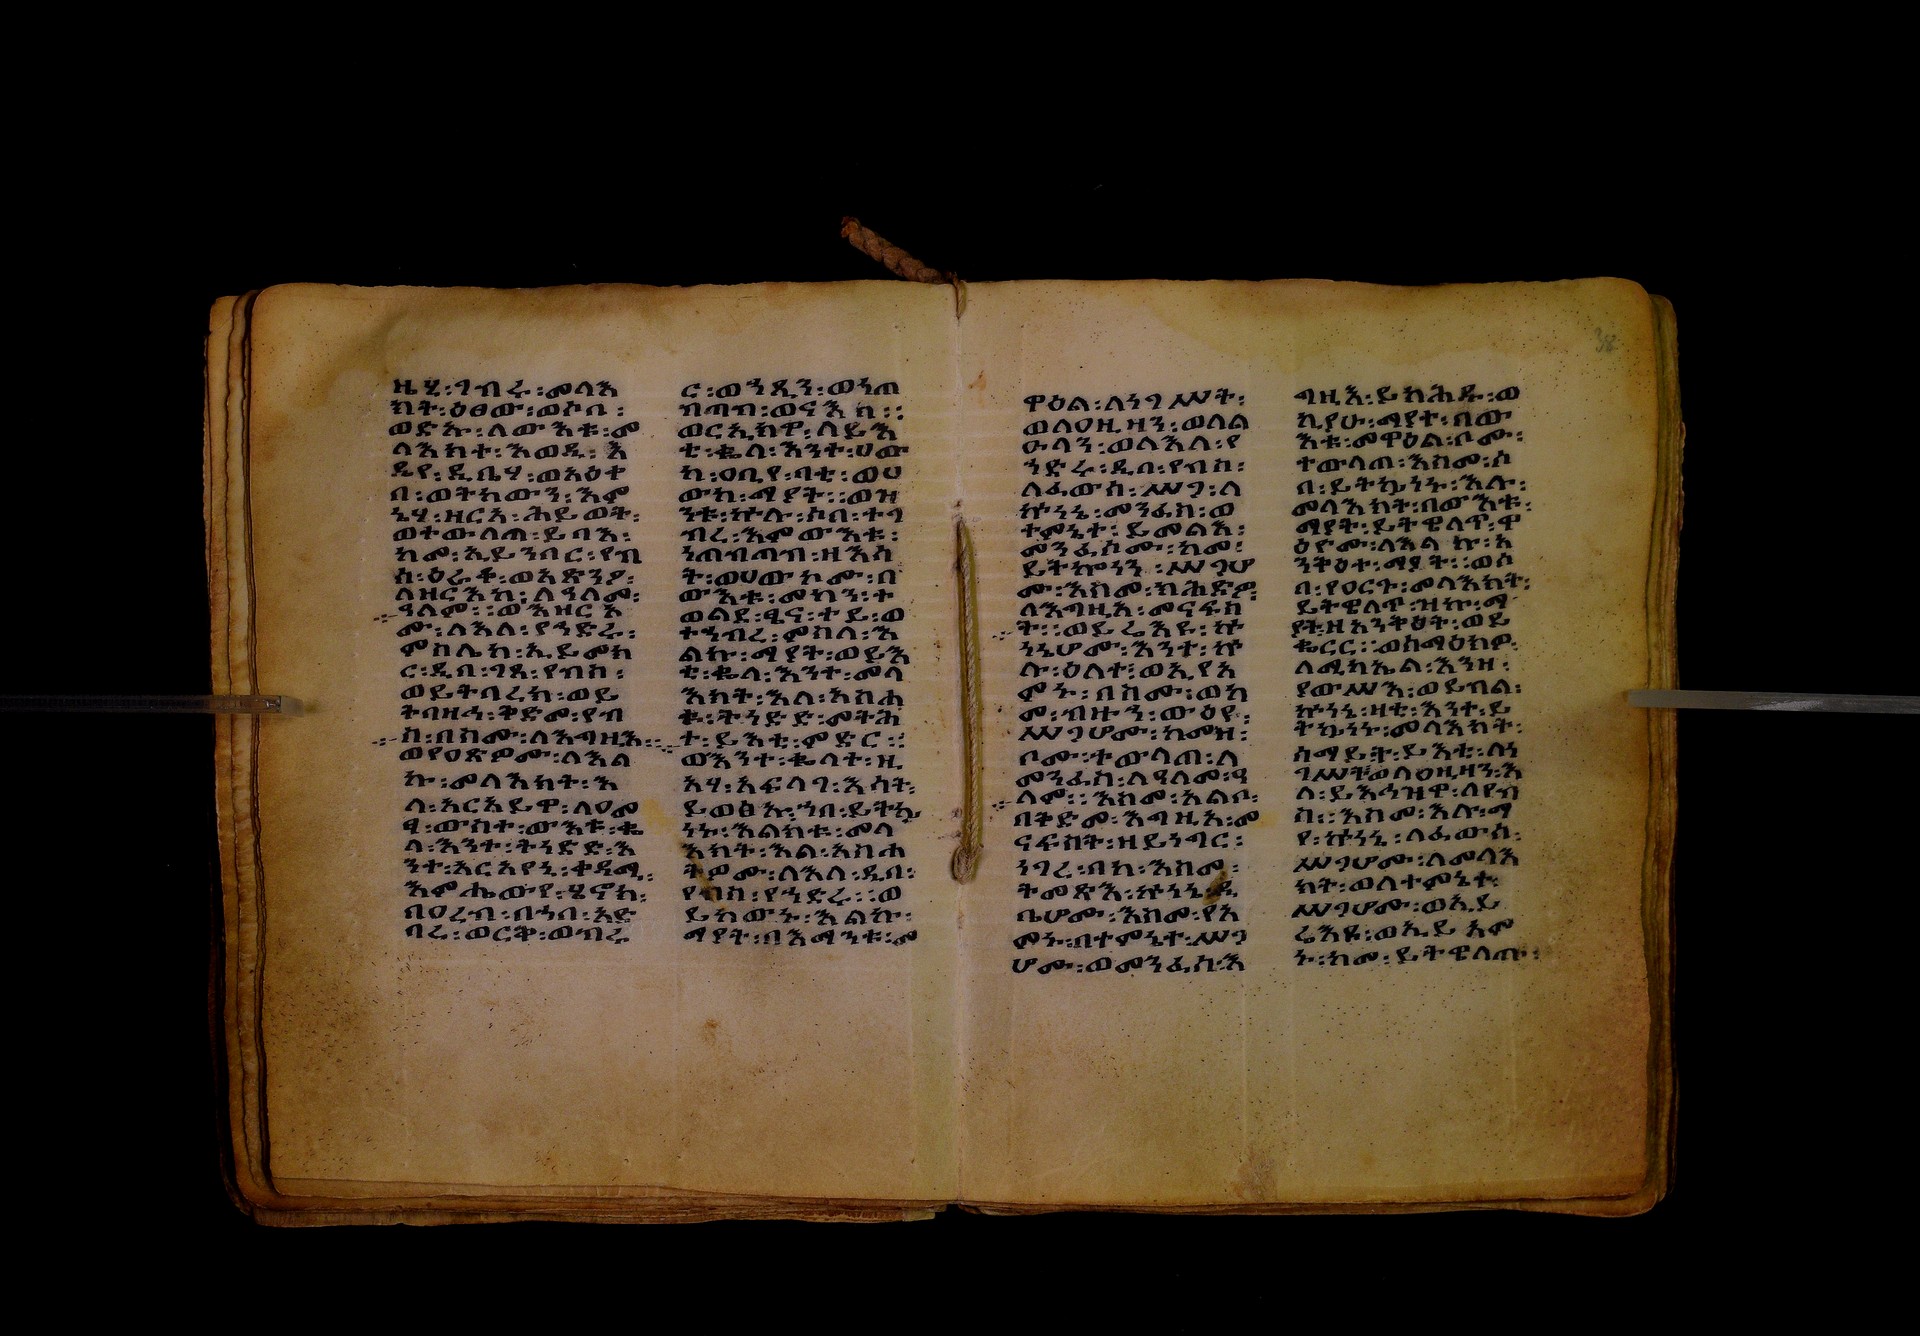 ዜሃ፡ገብሩ፡መላእ
ክት፡ዕፀው፡ወሶበ፡
ወድኡ፡ለውእቱ፡መ
ላእክተ፡እወዲ፡እ
ዴየ፡ዲቤሃ፡ወአዕተ
በ፡ወትከውን፡እም
ኔሃ፡ዘርአ፡ሕይወት፡
ወተውላጠ፡ይባእ፡
ከመ፡ኢይንበር፡የብ
ስ፡ዕራቆ፡ወአጽንዖ፡
ለዘርእከ፡ለዓለመ፡
ዓለም፡፡ወእዘርአ
ሙ፡ለእለ፡የኀድሩ፡
ምስሌከ፡ኢይመክ
ር፡ዲበ፡ገጸ፡የብስ፡
ወይትባረክ፡ወይ
ትባዛኅ፡ቅድመ፡የብ
ስ፡በስሙ፡ለእግዚእ፡፡
ወየዐጽዎሙ፡ለእል
ኩ፡መላእክት፡እ
ለ፡አርአይዋ፡ለዐመ
ፃ፡ውስተ፡ውእቱ፡ቈ
ላ፡እንተ፡ትነድድ፡እ
ንተ፡አርአየኒ፡ቀዳሚ፡
እምሔውየ፡ሄኖክ፡
በዐረብ፡በኀበ፡አድ
ባረ፡ወርቅ፡ወብሩ
ር፡ወኀዲን፡ወነጠ
ብጣብ፡ወናእክ፡፡
ወርኢክዋ፡ለይእ
ቲ፡ቈላ፡እንተ፡ሀው
ክ፡ዐቢየ፡ባቲ፡ወሀ
ውከ፡ማያት፡፡ወዝ
ንቱ፡ኵሉ፡ሶበ፡ተገ
ብረ፡እምውእቱ፡
ነጠብጣብ፡ዘእሳ
ት፡ወሀውኮሙ፡በ
ውእቱ፡መካን፡ተ
ወልደ፡ፄና፡ተይ፡ወ
ተኀብረ፡ምስለ፡እ
ልኩ፡ማያት፡ወይእ
ቲ፡ቈላ፡እንተ፡መላ
እክት፡እለ፡አስሐ
ቱ፡ትነድድ፡መትሕ
ተ፡ይእቲ፡ምድር፡፡
ወእንተ፡ቈላት፡ዚ
አሃ፡አፍላገ፡እሳት፡
ይወፅኡ፡ኀበ፡ይትኴ
ነኑ፡እልክቱ፡መላ
እክት፡እል፡አስሐ
ትዎሙ፡ለእለ፡ዲበ፡
የብስ፡የኀድሩ፡፡ወ
ይከውኑ፡እልኩ፡
ማያት፡በእማንቱ፡መ
ዋዕል፡ለነገሥት፡
ወለዐዚዛን፡ወለል
ዑላን፡ወለእለ፡የ
ኀድሩ፡ዲበ፡የብስ፡
ለፈውሰ፡ሥጋ፡ለ
ኵነኔ፡መንፈስ፡ወ
ተምኔተ፡ይመልእ፡
መንፈሶሙ፡ከመ፡
ይትኰነን፡ሥጋሆ
ሙ፡እስመ፡ክሕድዎ፡
ለእግዚአ፡መናፍስ
ት፡፡ወይሬእዩ፡ኵ
ነኔሆሙ፡እንተ፡ኵ
ሉ፡ዕለተ፡ወኢየአ
ምኑ፡በስሙ፡ወከ
መ፡ብዙኅ፡ውዕየ፡
ሥጋሆሙ፡ከመዝ፡
ቦሙ፡ተውላጠ፡ለ
መንፈስ፡ለዓለመ፡ዓ
ለም፡፡እስመ፡አልቦ፡
በቅድመ፡እግዚአ፡መ
ናፍስት፡ዘይነግር፡
ነገረ፡በክ፡እስመ፡
ትመጽእ፡ኵነኔ፡ዲ
ቤሆሙ፡እስመ፡የአ
ምኑ፡በተምኔተ፡ሥጋ
ሆሙ፡ወመንፈሰ፡እ
ግዚእ፡ይክሕዱ፡ወ
ኪያሁ፡ማያተ፡በው
እቱ፡መዋዕል፡ቦሙ፡
ተውላጠ፡እስመ፡ሶ
በ፡ይትኴነኑ፡እሉ፡
መላእክት፡በውእቱ፡
ማያት፡ይትዌለጥ፡ዋ
ዕዮሙ፡ለእልኩ፡አ
ንትዕተ፡ማያት፡፡ወሶ
በ፡የዐርጉ፡መላእክት፡
ይትዌለጥ፡ዝኩ፡ማ
የቲ፡ዘአንትፅት፡ወይ
ቈርር፡፡ወስማዕክዎ፡
ለሚካኤል፡እንዘ፡
የውሥእ፡ወይብል፡
ኵነኔ፡ዛቲ፡እንተ፡ይ
ትኴነኑ፡መላእክት፡
ስማይት፡ይእቲ፡ለነ
ገሥት፡ወለዕዚዛን፡እ
ለ፡ይእኅዝዋ፡ለየብ
ስ፡፡እስመ፡እሉ፡ማ
የ፡ኵነኔ፡ለፈውሰ፡
ሥጋሆሙ፡ለመላእ
ክት፡ወለተምኔተ፡
ሥጋሆሙ፡ወኢይ
ሬእዩ፡ወኢይአም
ኑ፡ከመ፡ይትዌለጡ፡